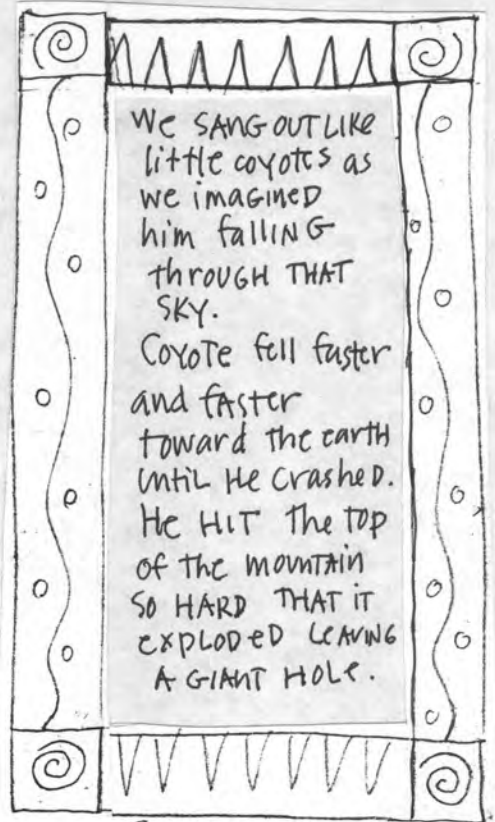 We SANG OUT LIKE
little coyotes as
we imAGineD
him fALLING
throUGH THAT
SKY.
CoyoTe fell faster
and fAster
toward the earth
UntiL He CrasheD.
He HIT The Top
of the mounTAin
SO HARD THAT iT
expLODeD LeAVING
A GIANT HOLe.